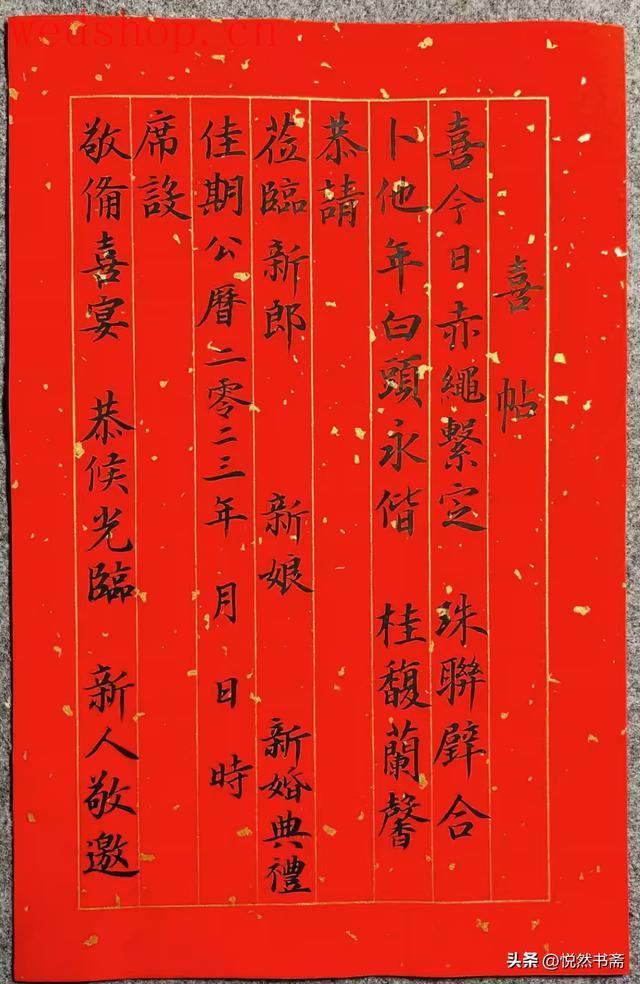 wedshop.cn
喜帖
喜今日赤繩繫定 珠聯璧合
卜他年白頭永偕 桂馥蘭馨
恭請
蒞臨新郎 新娘 新婚典禮
佳期公曆二零二三年 月 日 時
席設
敬備喜宴 恭候光臨 新人敬邀
头条 @悦然书斋